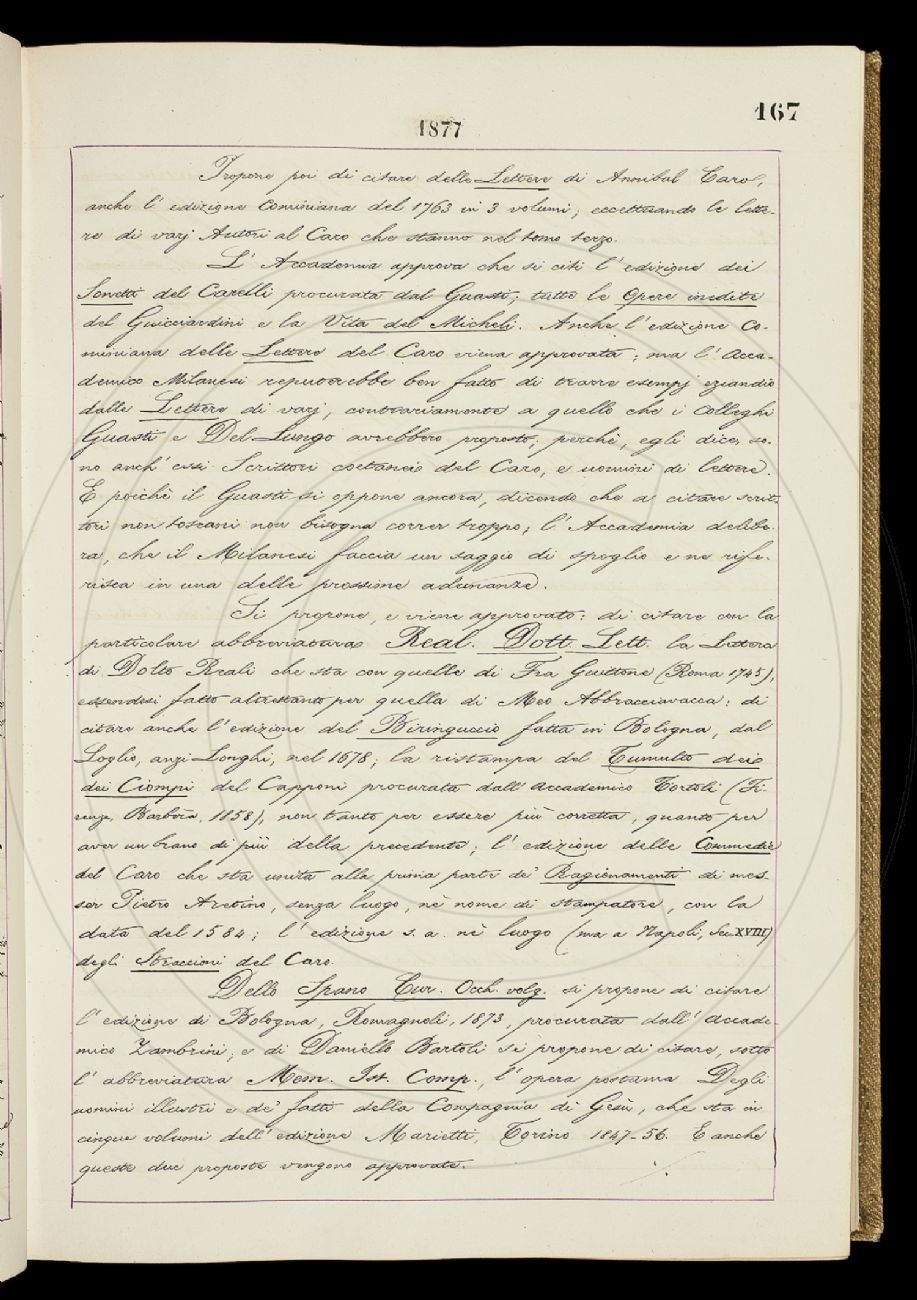 167
1877
Propone poi di citare delle Lettere di Annibal Caro,
anche l'edizione Cominiana del 1763 in 3 volumi; eccettuando le lette-
re di varj Autori al Caro che stanno nel tomo terzo.
L'Accademia approva che si citi l'edizione dei
Sonetti del Carelli procurata dal Guasti; tutte le Opere inedite
del Guicciardini e la Vita del Micheli. Anche l'edizione Co-
miniana delle Lettere del Caro viene approvata; ma l'Acca-
demico Milanesi reputerebbe ben fatto di trarre esempj eziandio
dalle Lettere di varj, contrariamente a quello che i Colleghi
Guasti e Del Lungo avrebbero proposto; perchè, egli dice, so-
no anch'essi Scrittori coetanei del Caro, e uomini di lettere.
E poichè il Guasti si oppone ancora, dicendo che a citare scrit-
tori non toscani non bisogna correr troppo; l'Accademia delibe-
ra, che il Milanesi faccia un saggio di spoglio e ne rife-
risca in una delle prossime adunanze.
Si propone, e viene approvato: di citare con la
particolare abbreviatura Real. Dott. Lett. la Lettera
di Dotto Reali che sta con quelle di Fra Guittone (Roma 1745),
essendosi fatto altrettanto per quella di Meo Abbracciavacca; di
citare anche l'edizione del Biringuccio fatta in Bologna, dal
Loglio, anzi Longhi, nel 1678; la ristampa del Tumulto dei
dei Ciompi del Capponi procurata dall'Accademico Tortoli (Fi-
renze, Barbèra, 1858), non tanto per essere più corretta, quanto per
aver un brano di più della precedente; l'edizione delle Commedie
del Caro che sta unita alla prima parte de' Ragionamenti di mes-
ser Pietro Aretino, senza luogo, nè nome di stampatore, con la
data del 1584; l'edizione s. a. nè luogo (ma a Napoli, Sec. XVIII)
degli Straccioni del Caro.
Dello Spano Cur. Occh. volg. si propone di citare
l'edizione di Bologna, Romagnoli, 1873, procurata dall'Accade-
mico Zambrini; e di Daniello Bartoli si propone di citare, sotto
l'abbreviatura Mem. Ist. Comp., l'opera postuma Degli
uomini illustri e de' fatti della Compagnia di Gesù, che sta in
cinque volumi dell'edizione Marietti, Torino 1847-56. E anche
queste due proposte vengono approvate.